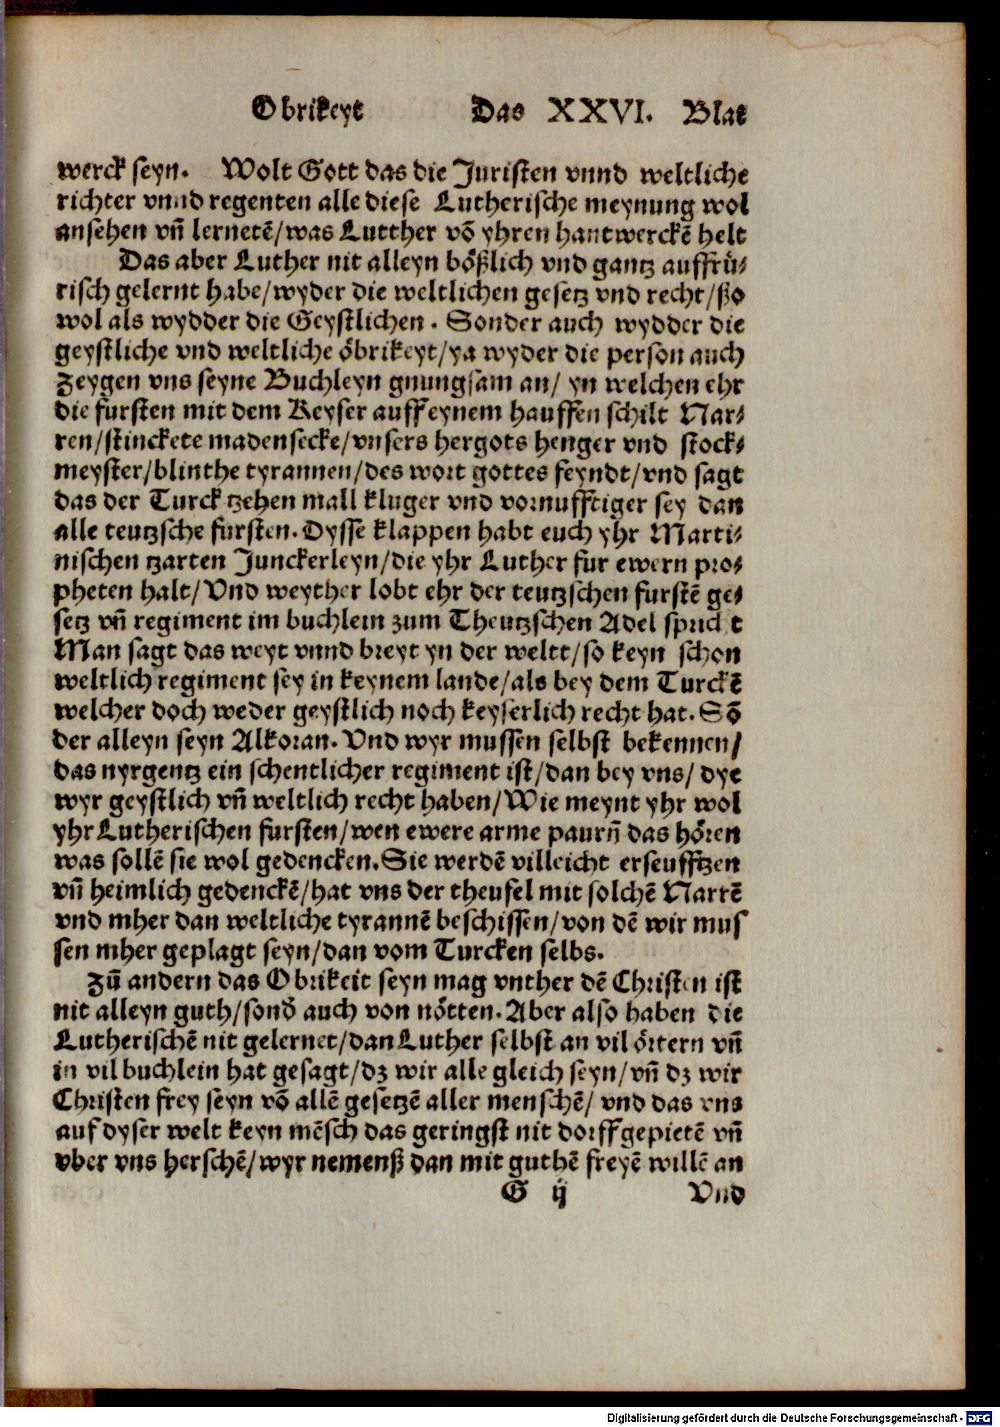 Obrikeyt Das XXVI. Blat
werck seyn. Wolt Gott das die Juristen vnnd weltliche
richter vnnd regenten alle diese Lutherische meynung wol
ansehen vn̄ lernetē/was Lutther vō yhren hantwerckē helt
Das aber Luther nit alleyn bößlich vnd gantz auffrü⸗
risch gelernt habe/wyder die weltlichen gesetz vnd recht/ßo
wol als wydder die Geystlichen. Sonder auch wydder die
geystliche vnd weltliche öbrikeyt/ya wyder die person auch
zeygen vns seyne Buchleyn gnungsam an/ yn welchen ehr
die fursten mit dem Keyser auff eynem hauffen schilt Nar⸗
ren/stinckete madensecke/vnsers hergots henger vnd stock⸗
meyster/blinthe tyrannen/des wort gottes feyndt/vnd sagt
das der Turck tzehen mall kluger vnd vornufftiger sey dan
alle teutzsche fursten. Dysse klappen habt euch yhr Marti⸗
nischen tzarten Junckerleyn/die yhr Luther fur ewern pro⸗
pheten halt/Vnd weyther lobt ehr der teutzschen furstē ge⸗
setz vn̄ regiment im buchlein zum Theutzschen Adel spricht
Man sagt das weyt vnnd breyt yn der weltt/so keyn schon
weltlich regiment sey in keynem lande/als bey dem Turckē
welcher doch weder geystlich noch keyserlich recht hat. Sō
der alleyn seyn Alkoran. Vnd wyr mussen selbst bekennen/
das nyrgentz ein schentlicher regiment ist/dan bey vns/ dye
wyr geystlich vn̄ weltlich recht haben/Wie meynt yhr wol
yhr Lutherischen fursten/wen ewere arme paurn̄ das hören
was sollē sie wol gedencken. Sie werdē villeicht erseufftzen
vn̄ heimlich gedenckē/hat vns der theufel mit solchē Narrē
vnd mher dan weltliche tyrannē beschissen/von dē wir mus
sen mher geplagt seyn/dan vom Turcken selbs.
Zū andern das Obrikeit seyn mag vnther dē Christen ist
nit alleyn guth/sond̄ auch von nötten. Aber also haben die
Lutherischē nit gelernet/dan Luther selbst an vil örtern vn̄
in vil buchlein hat gesagt/dz wir alle gleich seyn/vn̄ dz wir
Christen frey seyn vō allē gesetzē aller menschē/ vnd das vns
auf dyser welt keyn mēsch das geringst nit dorff gepietē vn̄
vber vns herschē/wyr nemenß dan mit guthē freyē willē an
G ij Vnd
Digitalisierung gefördert durch die Deutsche Forschungsgemeinschaft - DFG